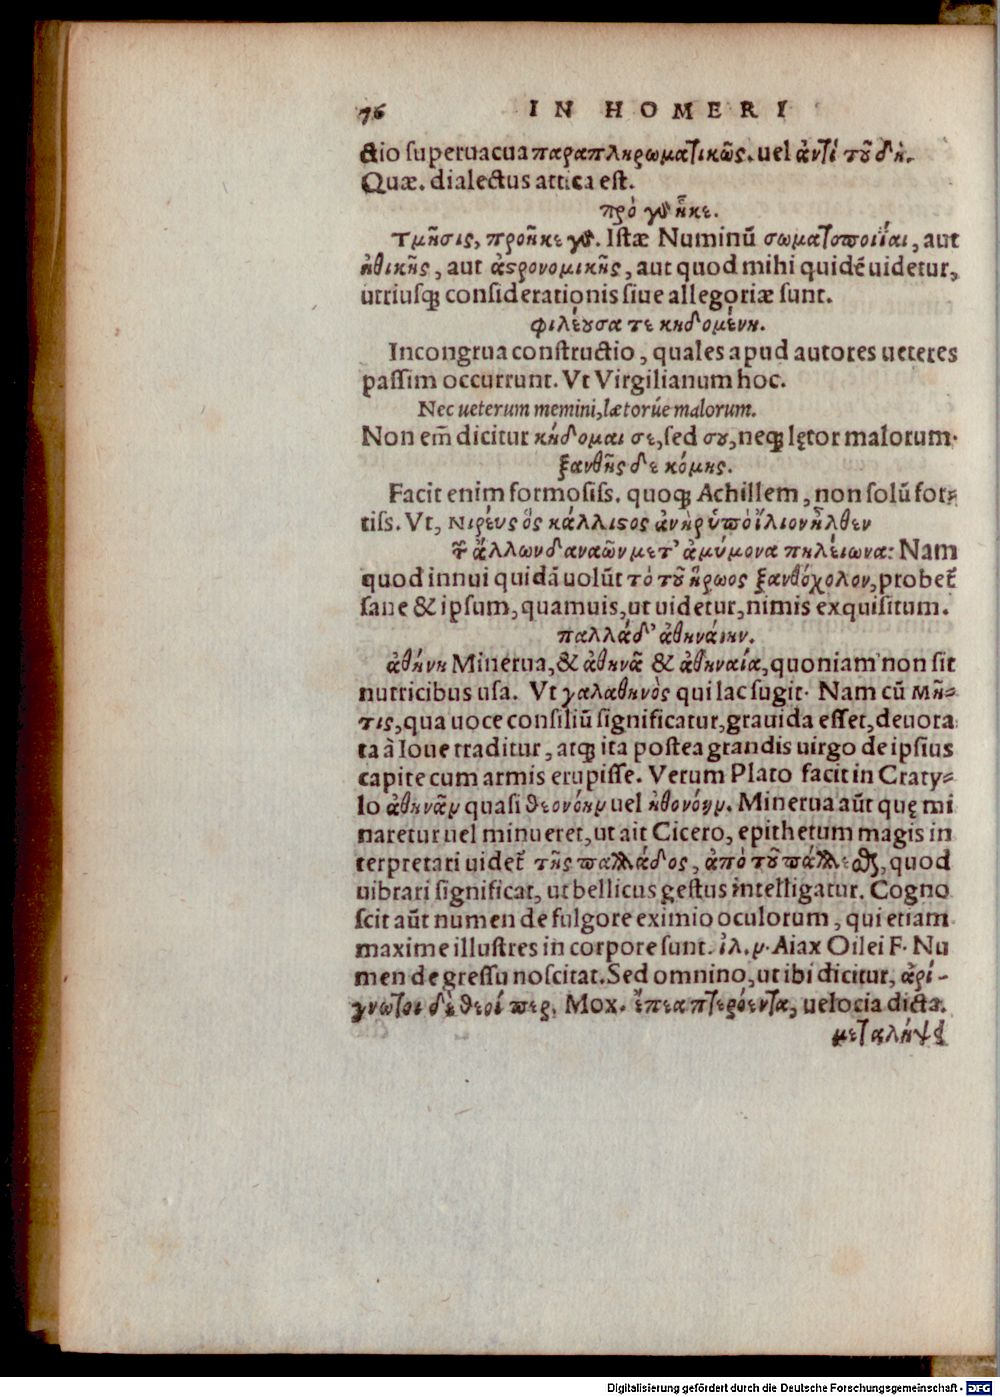 76 IN HOMERI
ctio superuacua παραπληρωματικῶς. uel ἀντὶ τοῦ δὴ.
Quæ. dialectus attica est.
πρὸ γὰρ ἧκε.
Τμῆσις, προῆκε γὰρ. Istæ Numinũ σωματοποιΐαι, aut
ἠθικῆς, aut ἀςρονομικῆς, aut quod mihi quidẽ uidetur,
utriusq; considerationis siue allegoriæ sunt.
φιλέουσα τε κηδομένη.
Incongrua constructio, quales apud autores ueteres
passim occurrunt. Vt Virgilianum hoc.
Nec ueterum memini, lætorúe malorum.
Non em̃ dicitur κήδομαι σε, sed σου, neq; lętor malorum.
ξανθῆς δὲ κόμης.
Facit enim formosiss. quoq; Achillem, non solũ for-
tiss. Vt, Νιρεύς ὃς κάλλιςος ἀνὴρ ὑπὸ ἴλιον ἦλθεν
τῶν ἄλλων δαναῶν μετ' ἀμύμονα πηλείωνα: Nam
quod innui quidã uolũt τὸ τοῦ ἥρωος ξανθόχολον, probet̃
sane & ipsum, quamuis, ut uidetur, nimis exquisitum.
παλλάδ' ἀθηναίην.
ἀθήνη Minerua, & ἀθηνᾶ & ἀθηναία, quoniam non sit
nutricibus usa. Vt γαλαθηνὸς qui lac sugit. Nam cũ μῆ-
τις, qua uoce consiliũ significatur, grauida esset, deuora
ta à Ioue traditur, atq; ita postea grandis uirgo de ipsius
capite cum armis erupisse. Verum Plato facit in Craty-
lo ἀθηνᾶν quasi θεονόην uel ἠθονόην. Minerua aũt quę mi
naretur uel minueret, ut ait Cicero, epithetum magis in
terpretari uidet̃ τῆς παλλάδος, ἀπὸ τοῦ πάλλεσθαι, quod
uibrari significat, ut bellicus gestus intelligatur. Cogno
scit aũt numen de fulgore eximio oculorum, qui etiam
maxime illustres in corpore sunt. ἰλ. ν. Aiax Oilei F. Nu
men de gressu noscitat. Sed omnino, ut ibi dicitur, ἀρί-
γνωτοι δὲ θεοί περ. Mox. ἔπεα πτερόεντα, uelocia dicta.
μεταλήψει
Digitalisierung gefördert durch die Deutsche Forschungsgemeinschaft - DFG